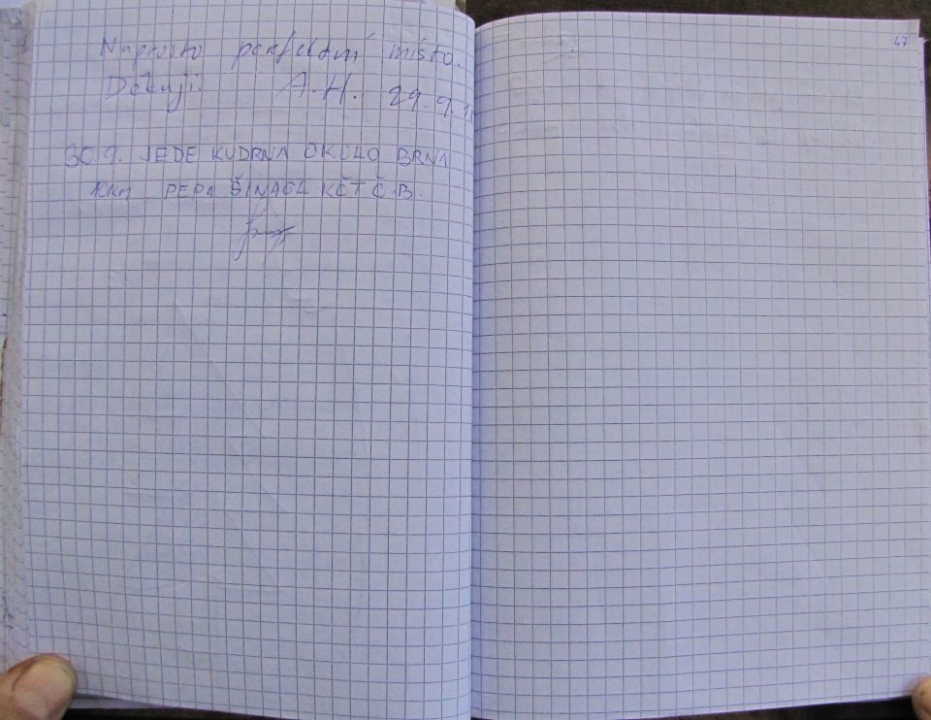 Naprosto perfektní místo.
Děkuji A.H. 29.9.
30.9. JEDE KUDRNA OKOLO BRNA
PEPA KČT Č.B.
47